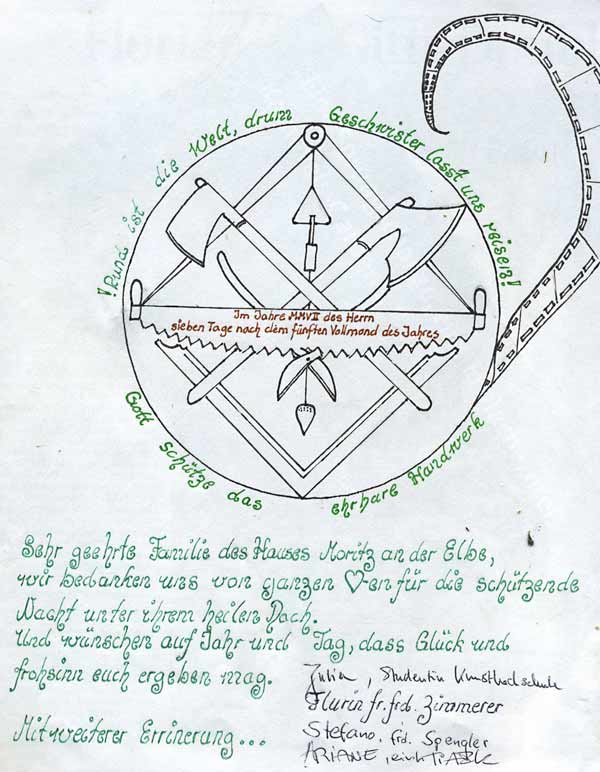 !Rund ist die Welt, drum Geschwister lasst uns reisen!
Im Jahre MMVII des Herrn
sieben Tage nach dem fünften Vollmond des Jahres
Gott schütze das ehrbare Handwerk
Sehr geehrte Familie des Hauses Moritz an der Elbe,
wir bedanken uns von ganzen ♡-en für die schützende
Nacht unter ihrem heilen Dach.
Und wünschen auf Jahr und Tag, dass Glück und
frohsinn euch ergeben mag.
Mit weiterer Errinerung...
Julia, Studentin Kunsthochschule
Flurin fr. frd. Zimmerer
Stefano, frd. Spengler
ARIANE,